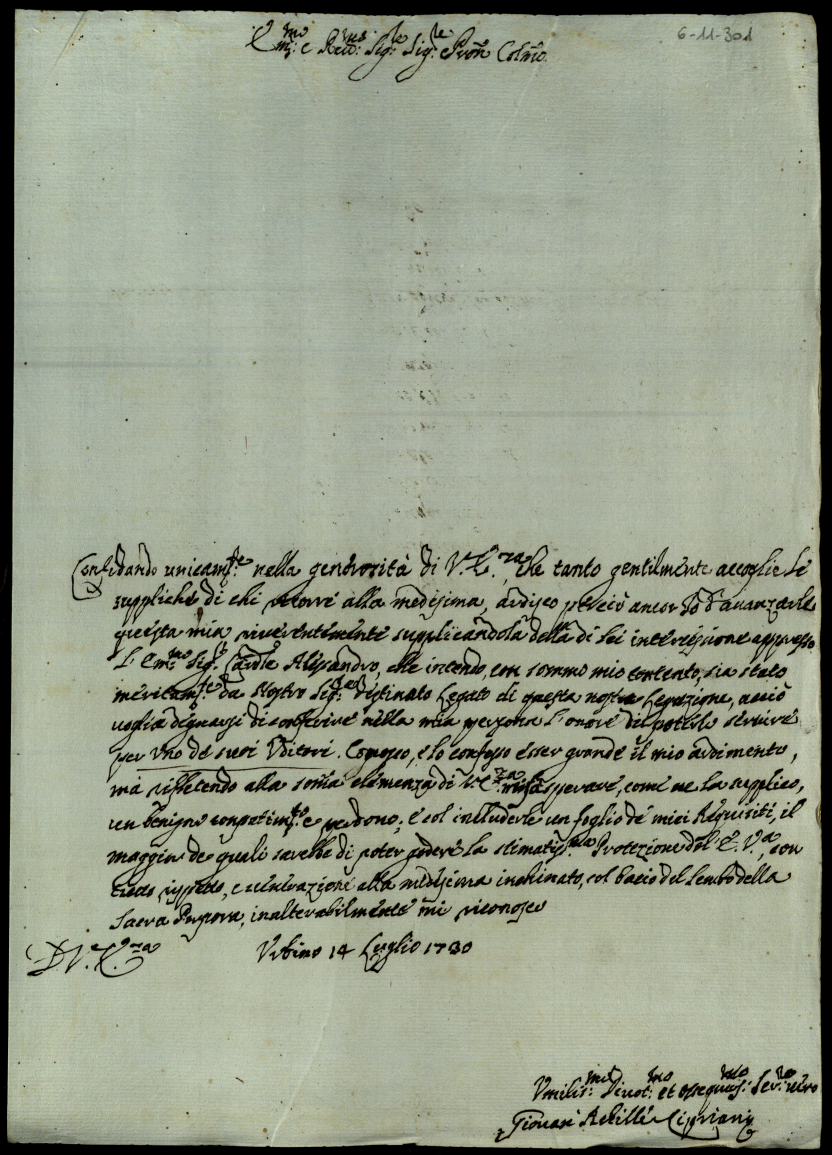 6-11-301
Em:mo e Rev:mo Sig:re Sig:re Pron Colmo
Confidando unicam:te nella generosità di V. E.nza, che tanto gentilmente accoglie le
suppliche di chi ricorre alla medesima, ardisco perciò ancor Io d'avanzarle
questa mia, riverentemente supplicandola della di Lei intercessione appresso
L'Em:mo Sig:r Card:le Alessandro, che intendo, con sommo mio contento, sia stato
meritam:te da Nostro Sig:re destinato Legato di questa nostra Legazione, acciò
voglia degnarsi di conferire nella mia persona l'onore di poterlo servire
per Uno de suoi Uditori. Conosco, e lo confesso esser grande il mio ardimento,
mà riflettendo alla somma clemenza di V. E.nza sperare, come ne la supplico,
un benigno compatim:to e perdono; e col includerle un foglio de miei Requisiti, il
maggior de quali sarebbe di poter godere la stimatis:ma Protezione dell' E. V.a, con
tutto rispetto, e venerazione alla medesima inchinato, col bacio del lembo della
Sacra Porpora, inalterabilmente mi riconosco
D. V. E.nza
Urbino 14 Luglio 1730
Umilis:mo Devot:mo et ossequios:mo Ser:re vero
Giovan Achille Cipriani